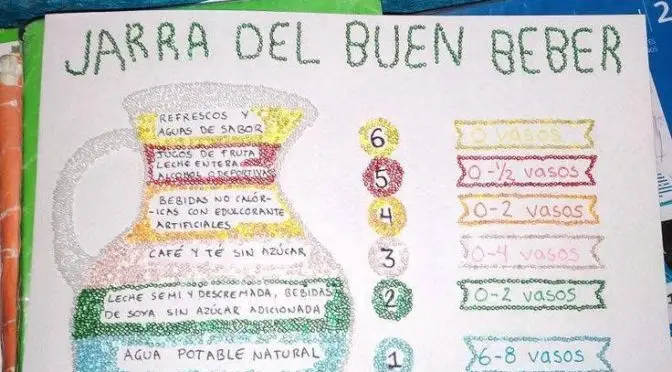 JARRA DEL BUEN BEBER
REFRESCOS Y
AGUAS DE SABOR
6
0 vasos
JUGOS DE FRUTA
LECHE ENTERA
ALCOHOL O DEPORTIVAS
5
0-½ vasos
BEBIDAS NO CALÓR-
-ICAS CON EDULCORANTE
ARTIFICIALES
4
0-2 vasos
CAFÉ Y TÉ SIN AZÚCAR
3
0-4 vasos
LECHE SEMI Y DESCREMADA, BEBIDAS
DE SOYA SIN AZÚCAR ADICIONADA
2
0-2 vasos
AGUA POTABLE NATURAL
1
6-8 vasos
2